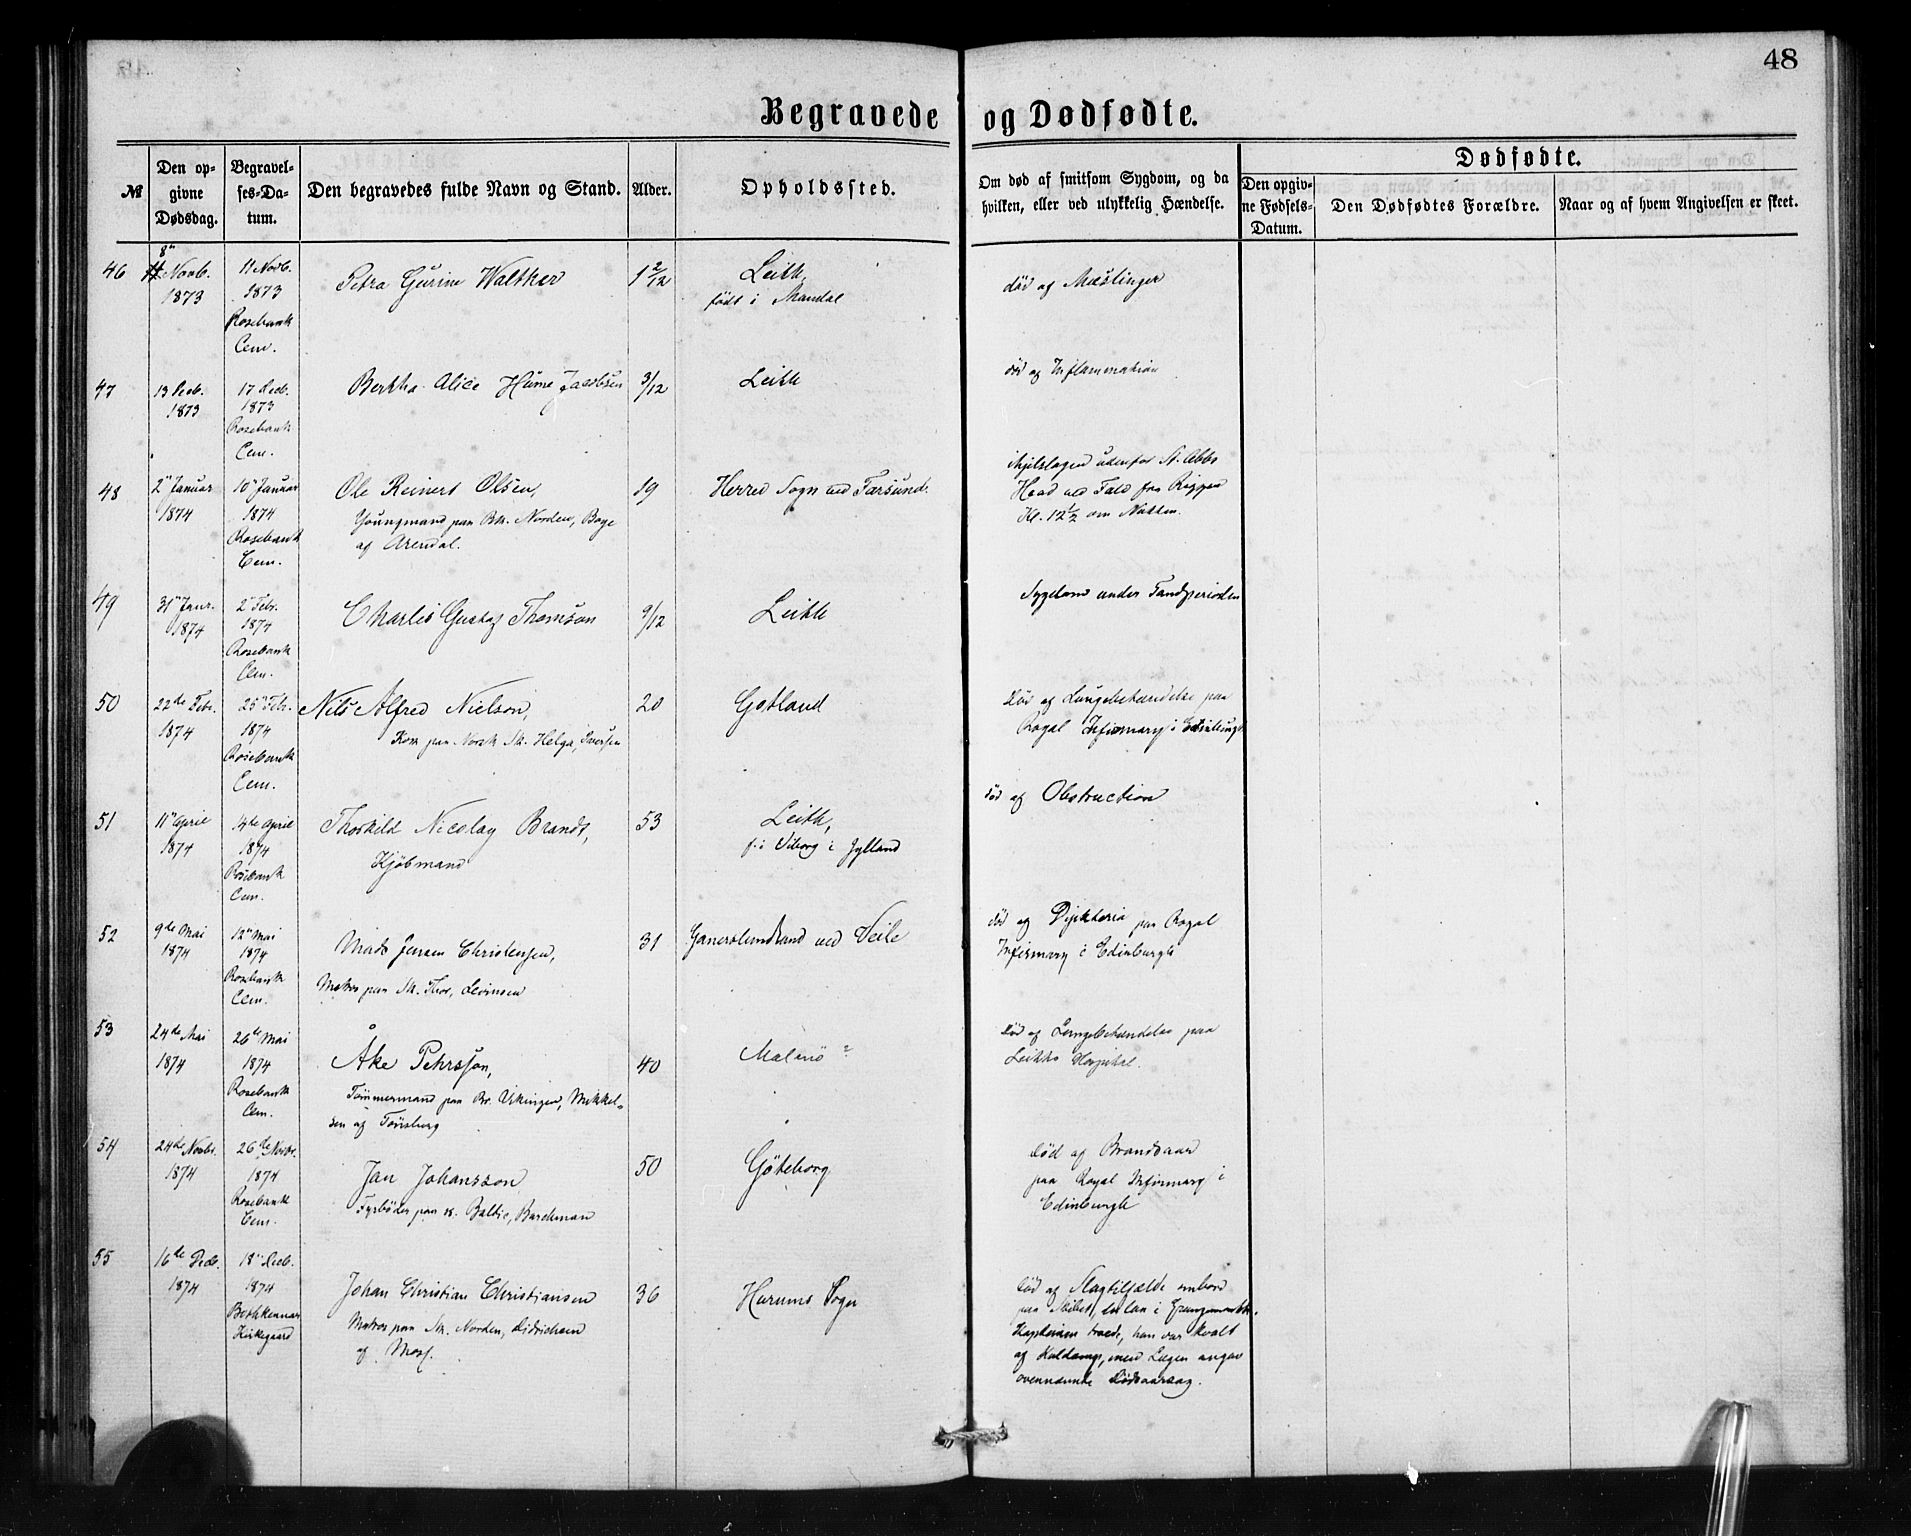 48
Begravede og Dødfødte.
№
Den opgivne Dødsdag.
Begravelses-Datum.
Den begravedes fulde Navn og Stand.
Alder.
Opholdssted.
Om død af smitsom Sygdom, og da hvilken, eller ved ulykkelig Hændelse.
Dødfødte.
Den opgivne Fødsels-Datum.
Den Dødfødtes Forældre.
Naar og af hvem Angivelsen er skeet.
46
8de
Novb.
1873
11 Novb.
1873
Rosebank
Cem.
Petra Gurine Walther
1 2/12
Leith,
født i Mandal
død af Mæslinger
47
13 Decb.
1873
17 Decb.
1873
Rosebank
Cem.
Bertha Alice Hume Jacobsen
3/12
Leith
død af Inflammation
48
2" Januar
1874
10" Januar
1874
Rosebank
Cem.
Ole Reinert Olsen,
Youngmand paa Bk. Norden, Boye
af Arendal.
19
Herred Sogn ved Farsund.
ihjelslagen udenfor St. Abbs
Head ved Fald fra Riggen
Kl. 12 1/2 om Natten.
49
31" Janr.
1874
2" Febr.
1874
Rosebank
Cem.
Charles Gustaf Thomson
9/12
Leith
Sygdom under Tandperioden
50
22de Febr.
1874
25" Febr.
1874
Rosebank
Cem.
Nils Alfred Nielson,
Kok paa Norsk Sk. Helga, Iversen
20
Gotland
død af Lungebetændelse paa
Royal Infirmary i Edinburgh
51
11" April
1874
14de April
1874
Rosebank
Cem.
Thorkild Nicolay Brandt,
Kjøbmand
53
Leith,
f. i Viborg i Jylland
død af Obstruction
52
9de Mai
1874
12" Mai
1874
Rosebank
Cem.
Mads Jensen Christensen,
Matros paa Sk. Thor, Levinsen
31
ved Veile
død af Diphteria paa Royal
Infirmary i Edinburgh
53
24de Mai
1874
26de Mai
1874
Rosebank
Cem.
Åke Pehrsson,
Tømmermand paa Br. Vikingen, Mikkel-
sen af Tønsberg
40
Malmö ?
død af Lungebetændelse paa
Leiths Hospital.
54
24de Novbr.
1874
26de Novbr.
1874
Rosebank
Cem.
Jan Johansson
Fyrbøder paa Baltic, Barchman
50
Göteborg
død af Brandsaar
paa Royal Infirmary i
Edinburgh
55
16de Decb.
1874
18" Decb.
1874
Bothkennar
Kirkegaard
Johan Christian Christiansen
Matros paa Sk. Norden, Didrichsen
af Moss.
36
Hurums Sogn
død af Slagtilfælde ombord
paa Skibet, da lan i Grangemouth.
Kapteinen troede, han var kvalt
af Kuldamp, men Lægen angav
ovennævnte Dødsaarsag.